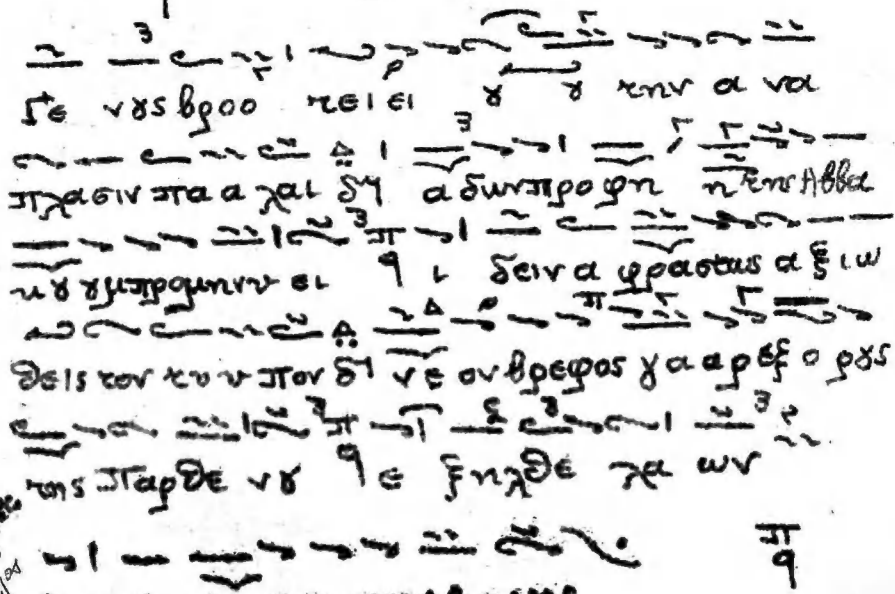 Γε νȣς βροο τει ει ȣ ȣ την α να
πλασιν πα α λαι δη α δων προφη η της Αββα
κȣ ȣμ προμηνυ ει ι δειν α φραστως α ξι ω
θεις τον τυ υ πον δη νε ον βρεφος γα αρ εξ ο ρȣς
της Παρθε νȣ ε ξηλθε λα ων